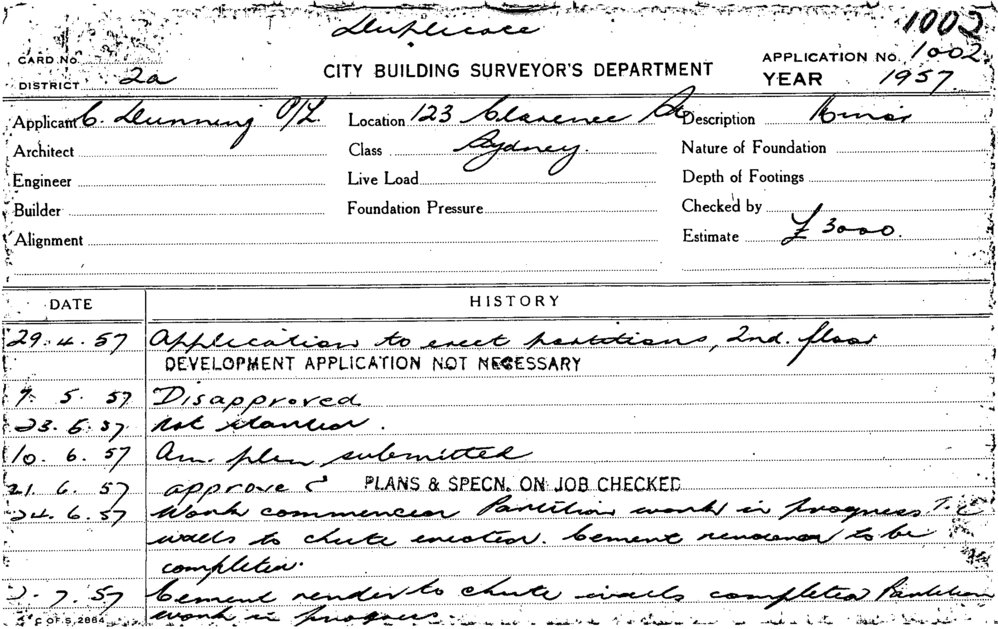 Duplicate
1002
CARD No.
APPLICATION No. 1002
DISTRICT 2a
CITY BUILDING SURVEYOR'S DEPARTMENT
YEAR 1957
Applicant C. Dunning P/L Location 123 Clarence St Description Minor
Architect Class Sydney. Nature of Foundation
Engineer Live Load Depth of Footings
Builder Foundation Pressure Checked by
Alignment Estimate £3000.
DATE HISTORY
29.4.57 Application to erect partitions, 2nd. floor
DEVELOPMENT APPLICATION NOT NECESSARY
7. 5. 57 Disapproved
23.5.57 Not started.
10.6.57 Am. plan submitted
21.6.57 approved PLANS & SPECN. ON JOB CHECKED
24.6.57 Work commenced Partition work in progress T.C
walls to chute erected. Cement render to be
completed.
2.7.57 Cement render to chute walls completed Partition
work in progress
C OF S. 2864